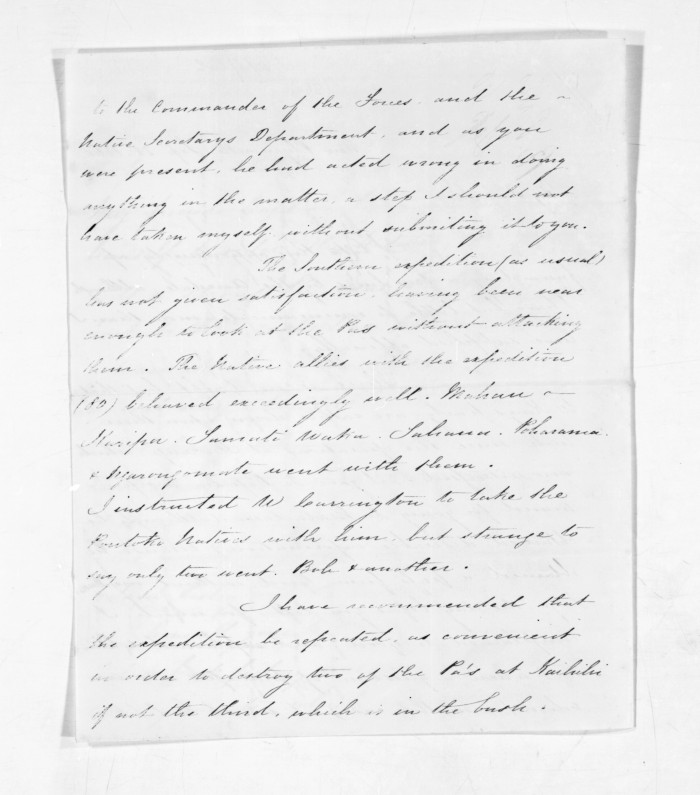 to the Commander of the Forces and the
Native Secretarys Department, and as you
were present, he had acted wrong in doing
anything in the matter, a step I should not
have taken myself without submiting it to you.
The Southern expedition (as usual)
has not given satisfaction, having been near
enough to look at the Pas without attacking
them. The Native allies with the expedition
(80) behaved exceedingly well. Mahau
Tamati Waka. Tahana. Poharama
& Ngarongomate went with them.
I instructed W Carrington to take the
Poutoko Natives with him, but strange to
say only two went. Bob & another.
I have recommended that
the expedition be repeated, as convenient
in order to destroy two of the Pa's at Kaihihi
if not the third, which is in the bush.